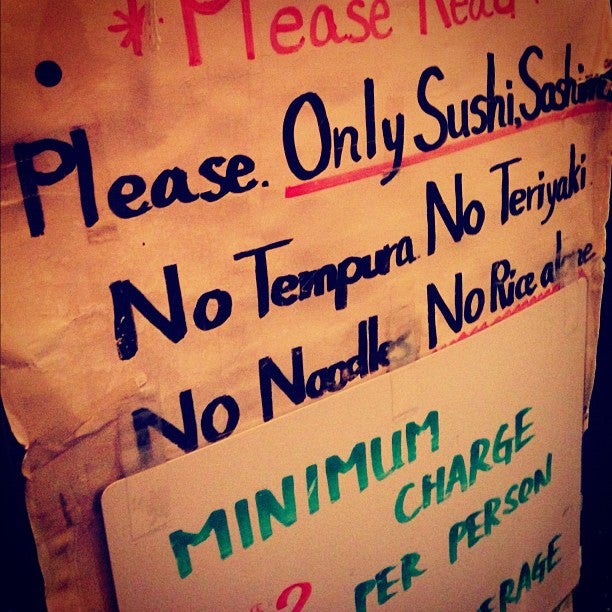 * Please Read
• Please. Only Sushi, Sashimi
No Tempura. No Teriyaki
No Noodles No Rice alone
MINIMUM
CHARGE
PER PERSON